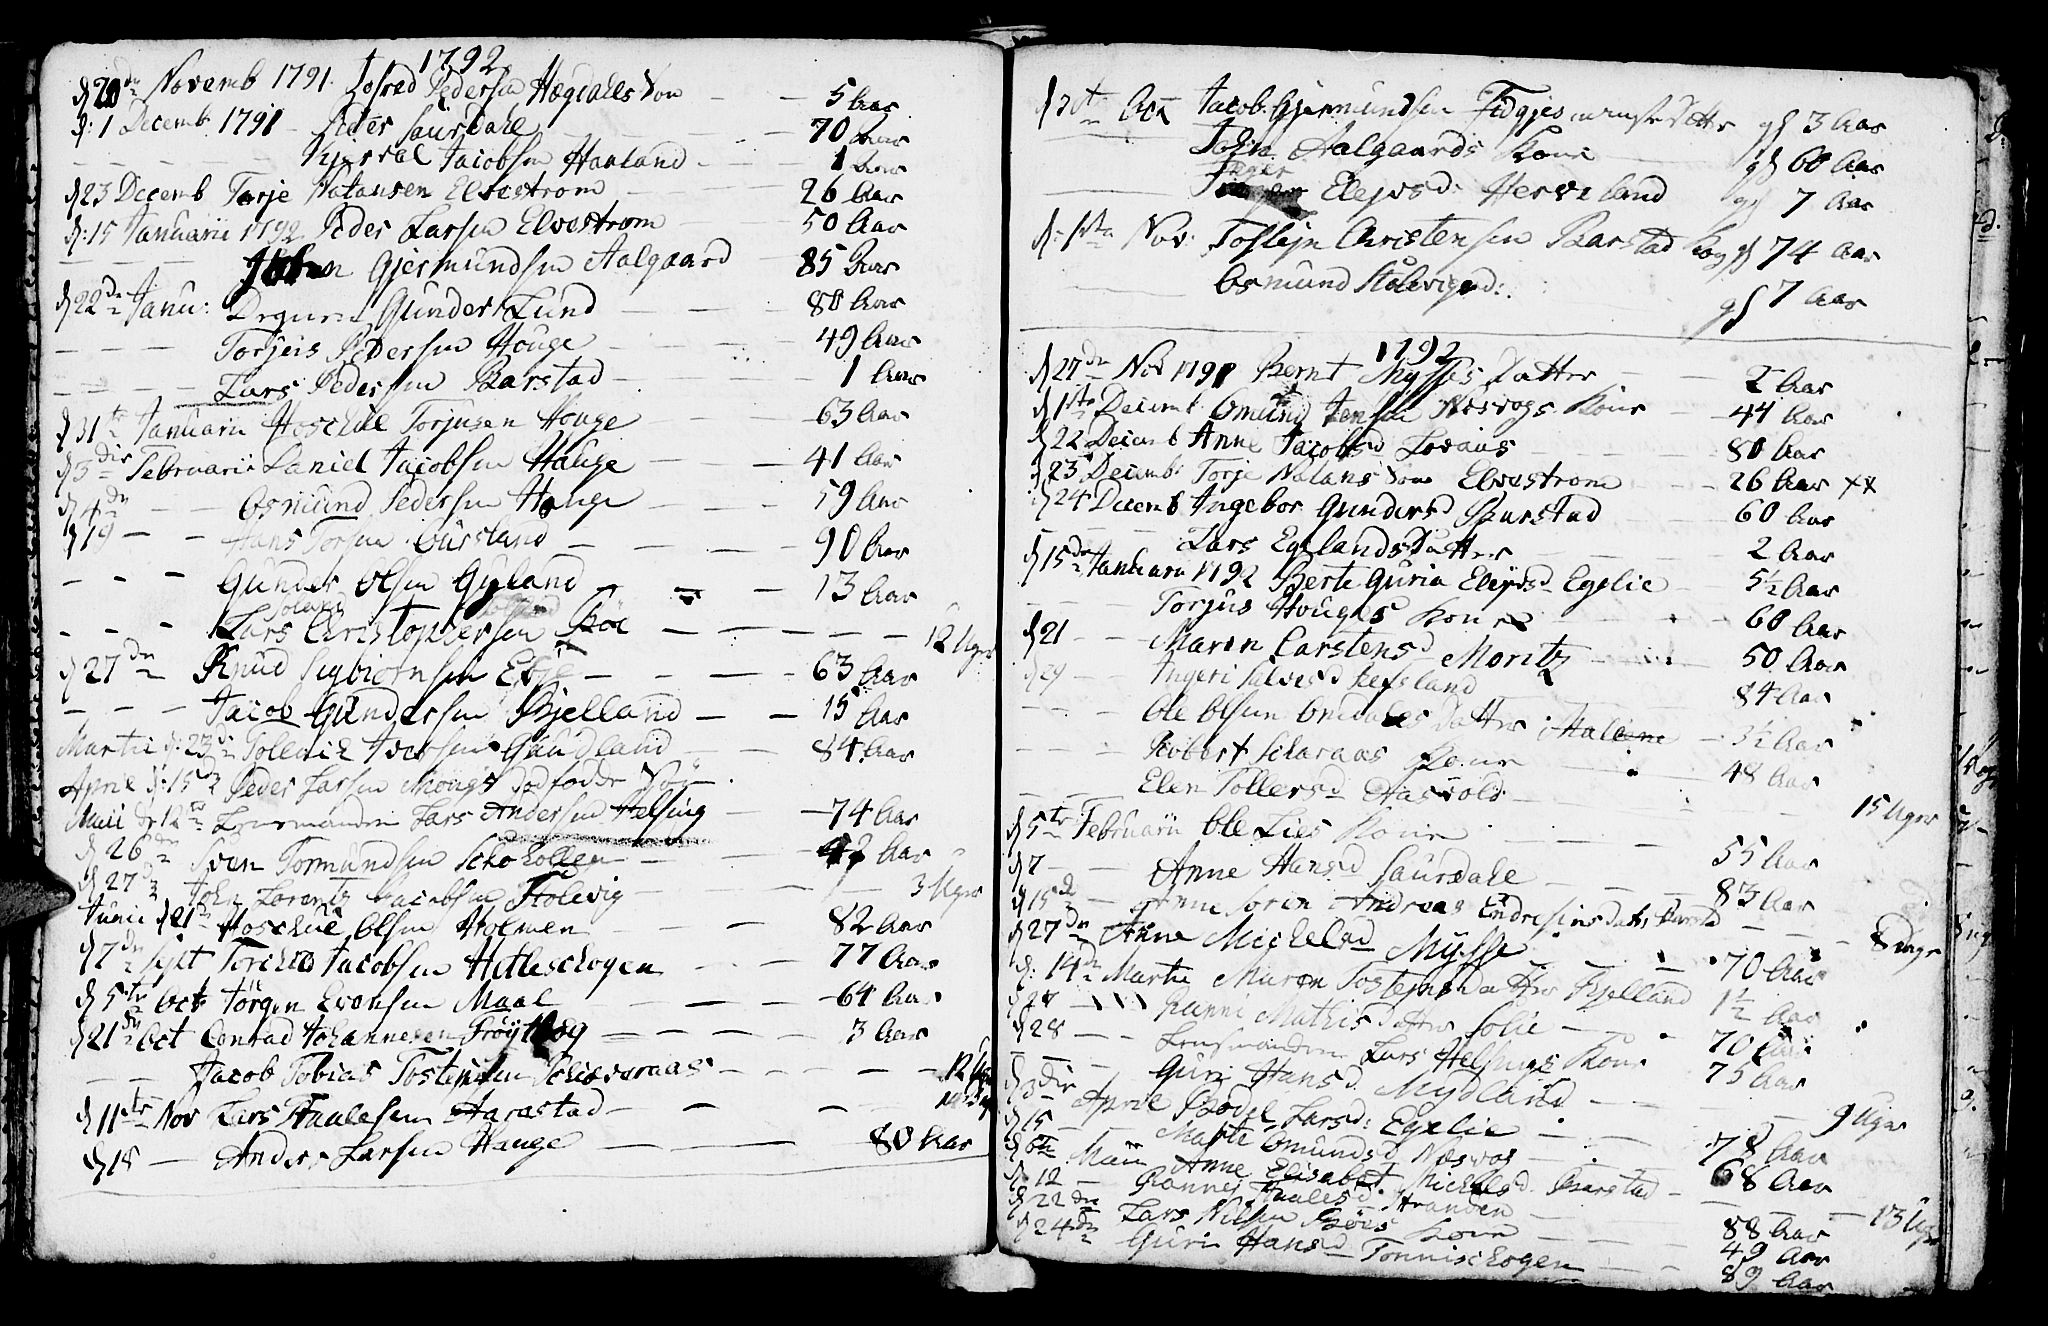 1792
d 20de Novemb 1791. Pedersen Hægdales Søn - - 5 Aar
d: 1 Decemb 1791 - Peder Saurdahl - - 70 Aar
- - - - Jacobsen Haaland - - 1 Aar
d 23 Decemb Tarje Natansen Elvestrøm - - 26 Aar
d: 15 Januarii 1792 Peder Larsen Elvestrøm - 50 Aar
- - - Johan Gjermundsen Aalgaard - 85 Aar
d 22de Janu: Gunders Lund - - - 80 Aar
- - - Torjeis Pedersen Houge - - - 49 Aar
- - - Lars Pedersen Barstad - - - 1 Aar
d 31te Januarii Hoschul Torjusen Houge - - 63 Aar
d 3die Februarii Daniel Jacobsen Hauge - - 41 Aar
d 4de - - Osmund Pedersen Houge - - - 59 Aar
d 19 - - Hans Torsen Oursland - - - 90 Aar
- - - Gunder Olsen Gyland - - 13 Aar
- - - Lars Christophersen Bøe - - - - 12 Uger
d 27de Knud Sigbiornsen Eeg - - - - 63 Aar
- - - Jacob Gundersen Bjelland - - 15 Aar
Martii d: 23de Tollevik Iversen Gaudland - - 84 Aar
April d: 15de Peder Larsen Mongs dødfødde Søn - -
Maii d 12te Lensmanden Lars Andersen Helsing - 74 Aar
d 26de Sven Tormundsen Schokollen - - Aar
d 27de John Lorentz Jacobsen Stolevig - - - 3 Uger
Junii d 21de Hoschul Olsen Holmen - - - 82 Aar
d 7de Sept Jacobsen Hetleschogen - - 77 Aar
d 5te Oct Jørgen Evensen Maal - - - 64 Aar
d 21de Oct Conrad Johannesen Frøytlog - - - 3 Aar
- - Jacob Tobias Tostensen - - - - 12 Uger
d 11te Nov Lars Staalesen Aarrestad - - -
d 18 - Anders Larsen Hauge - - - 80 Aar
d 30te Oct Jacob Gjermundsen Fidgjes Datter gl 3 Aar
- - John Aalgaards Kone - gl 60 Aar
- - Inger Elejvsd: Herveland gl 7 Aar
d: 1ste Nov: Tostejn Christensen Barstad Kog gl 74 Aar
Osmund gl 7 Aar
1792
d 27de Nov 1791 Bernt Mysses Datter - - 2 Aar
d 1ste Decemb Omund Jensen Næsvogs Kone - 44 Aar
d 22 Decemb Anne Jacobsd Lovaas - - - 80 Aar
d 23 Decemb: Torje Natans Søn Elvestrøm - - 26 Aar xx
d 24 Decemb Ingebor Gundersd Barstad - 60 Aar
- - Lars Egelands Datter - - 2 Aar
d 15de Januarii 1792 Berte Guria Elejvsd Egelie - 5½ Aar
- - Torjus Houges Kone - - 60 Aar
d 21 - - Maren Carstensd Moritz - - 50 Aar
d 29 - - Ingeri Salvesd Refsland 84 Aar
- - - Ole Olsen Omdales Datter Malene - 3½ Aar
- - - Robert Scharaas Kone - 48 Aar
- - - Elen Tollersd Aasvold - - - 15 Uger
d 5te Februarii Ole Lies Kone - - - 55 Aar
d 7 - - Anne Hansd Saurdahl - - - 83 Aar
d 15de - Anne Soren Andreas Endresens Datter Barstad - - - 8 Uger
d 27de Anne Michelsd Mysse - - 70 Aar
d: 14de Martii Maren Tostejns Datter Bjelland 1½ Aar
d 27 - - Ranni Mathis Datter Solie - - 70 Aar
d 28 - - Lensmanden Lars Helsings Kone 75 Aar
- - - Guri Hansd Mydland - - - - 9 Uger
d 3die April Bodel Larsd: Egelie - - - 78 Aar
d 15 - - Marte Omundsd Næsvog - - 68 Aar
d 6te Maii Anne Elisabet Michelsd Barstad - - - 13 Uger
d 12 - Rannei Staalesd Stranden - - 88 Aar
d 22de Lars Nilsen Bøes Kone - - 49 Aar
d 24de Guri Hansd Tonnischogen - - 89 Aar